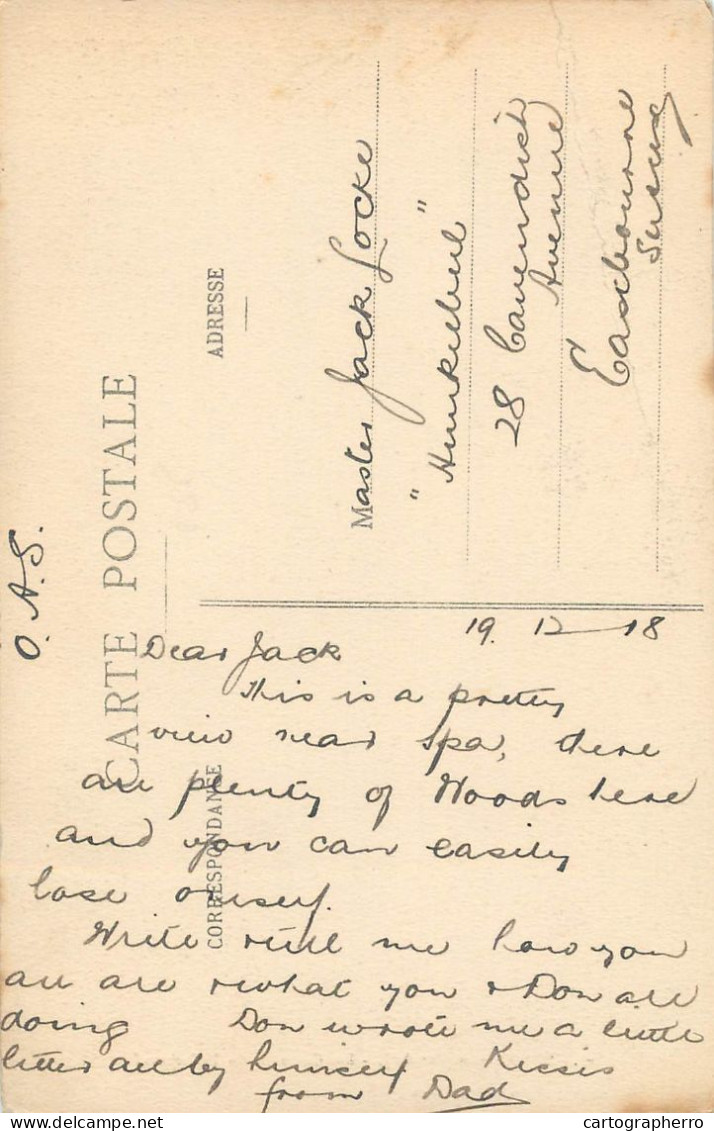 O.A.S.
CARTE POSTALE
CORRESPONDANCE
ADRESSE
Master Jack Locke
28 Cavendish
Avenue
Eastbourne
Sussex
19. 12 - 18
Dear Jack
This is a pretty
view near Spa, there
are plenty of Woods here
and you can easily
lose oneself.
Write & tell me how you
all are & what you & Don are
doing Don wrote me a little
letter all by himself Kisses
from Dad
delcampe.net
cartographerro